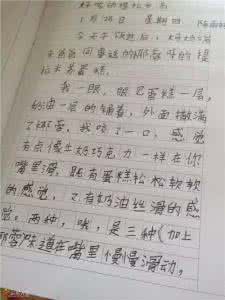 好吃的提拉米苏
1月28日 星期四
今天午饭后,妈妈
回重送的椰蓉味的提
拉米苏蛋糕。
我一眼,眼见蛋糕一层,
奶油一层的铺着,外面撒满
了椰蓉,我吃了一口,感觉
有点像生奶巧克力一样在你
嘴里滑,既有蛋糕松松软软
的感觉,又有奶油丝滑的感
觉。两种,哦,是三种(加上
味道在嘴里慢慢滑动,